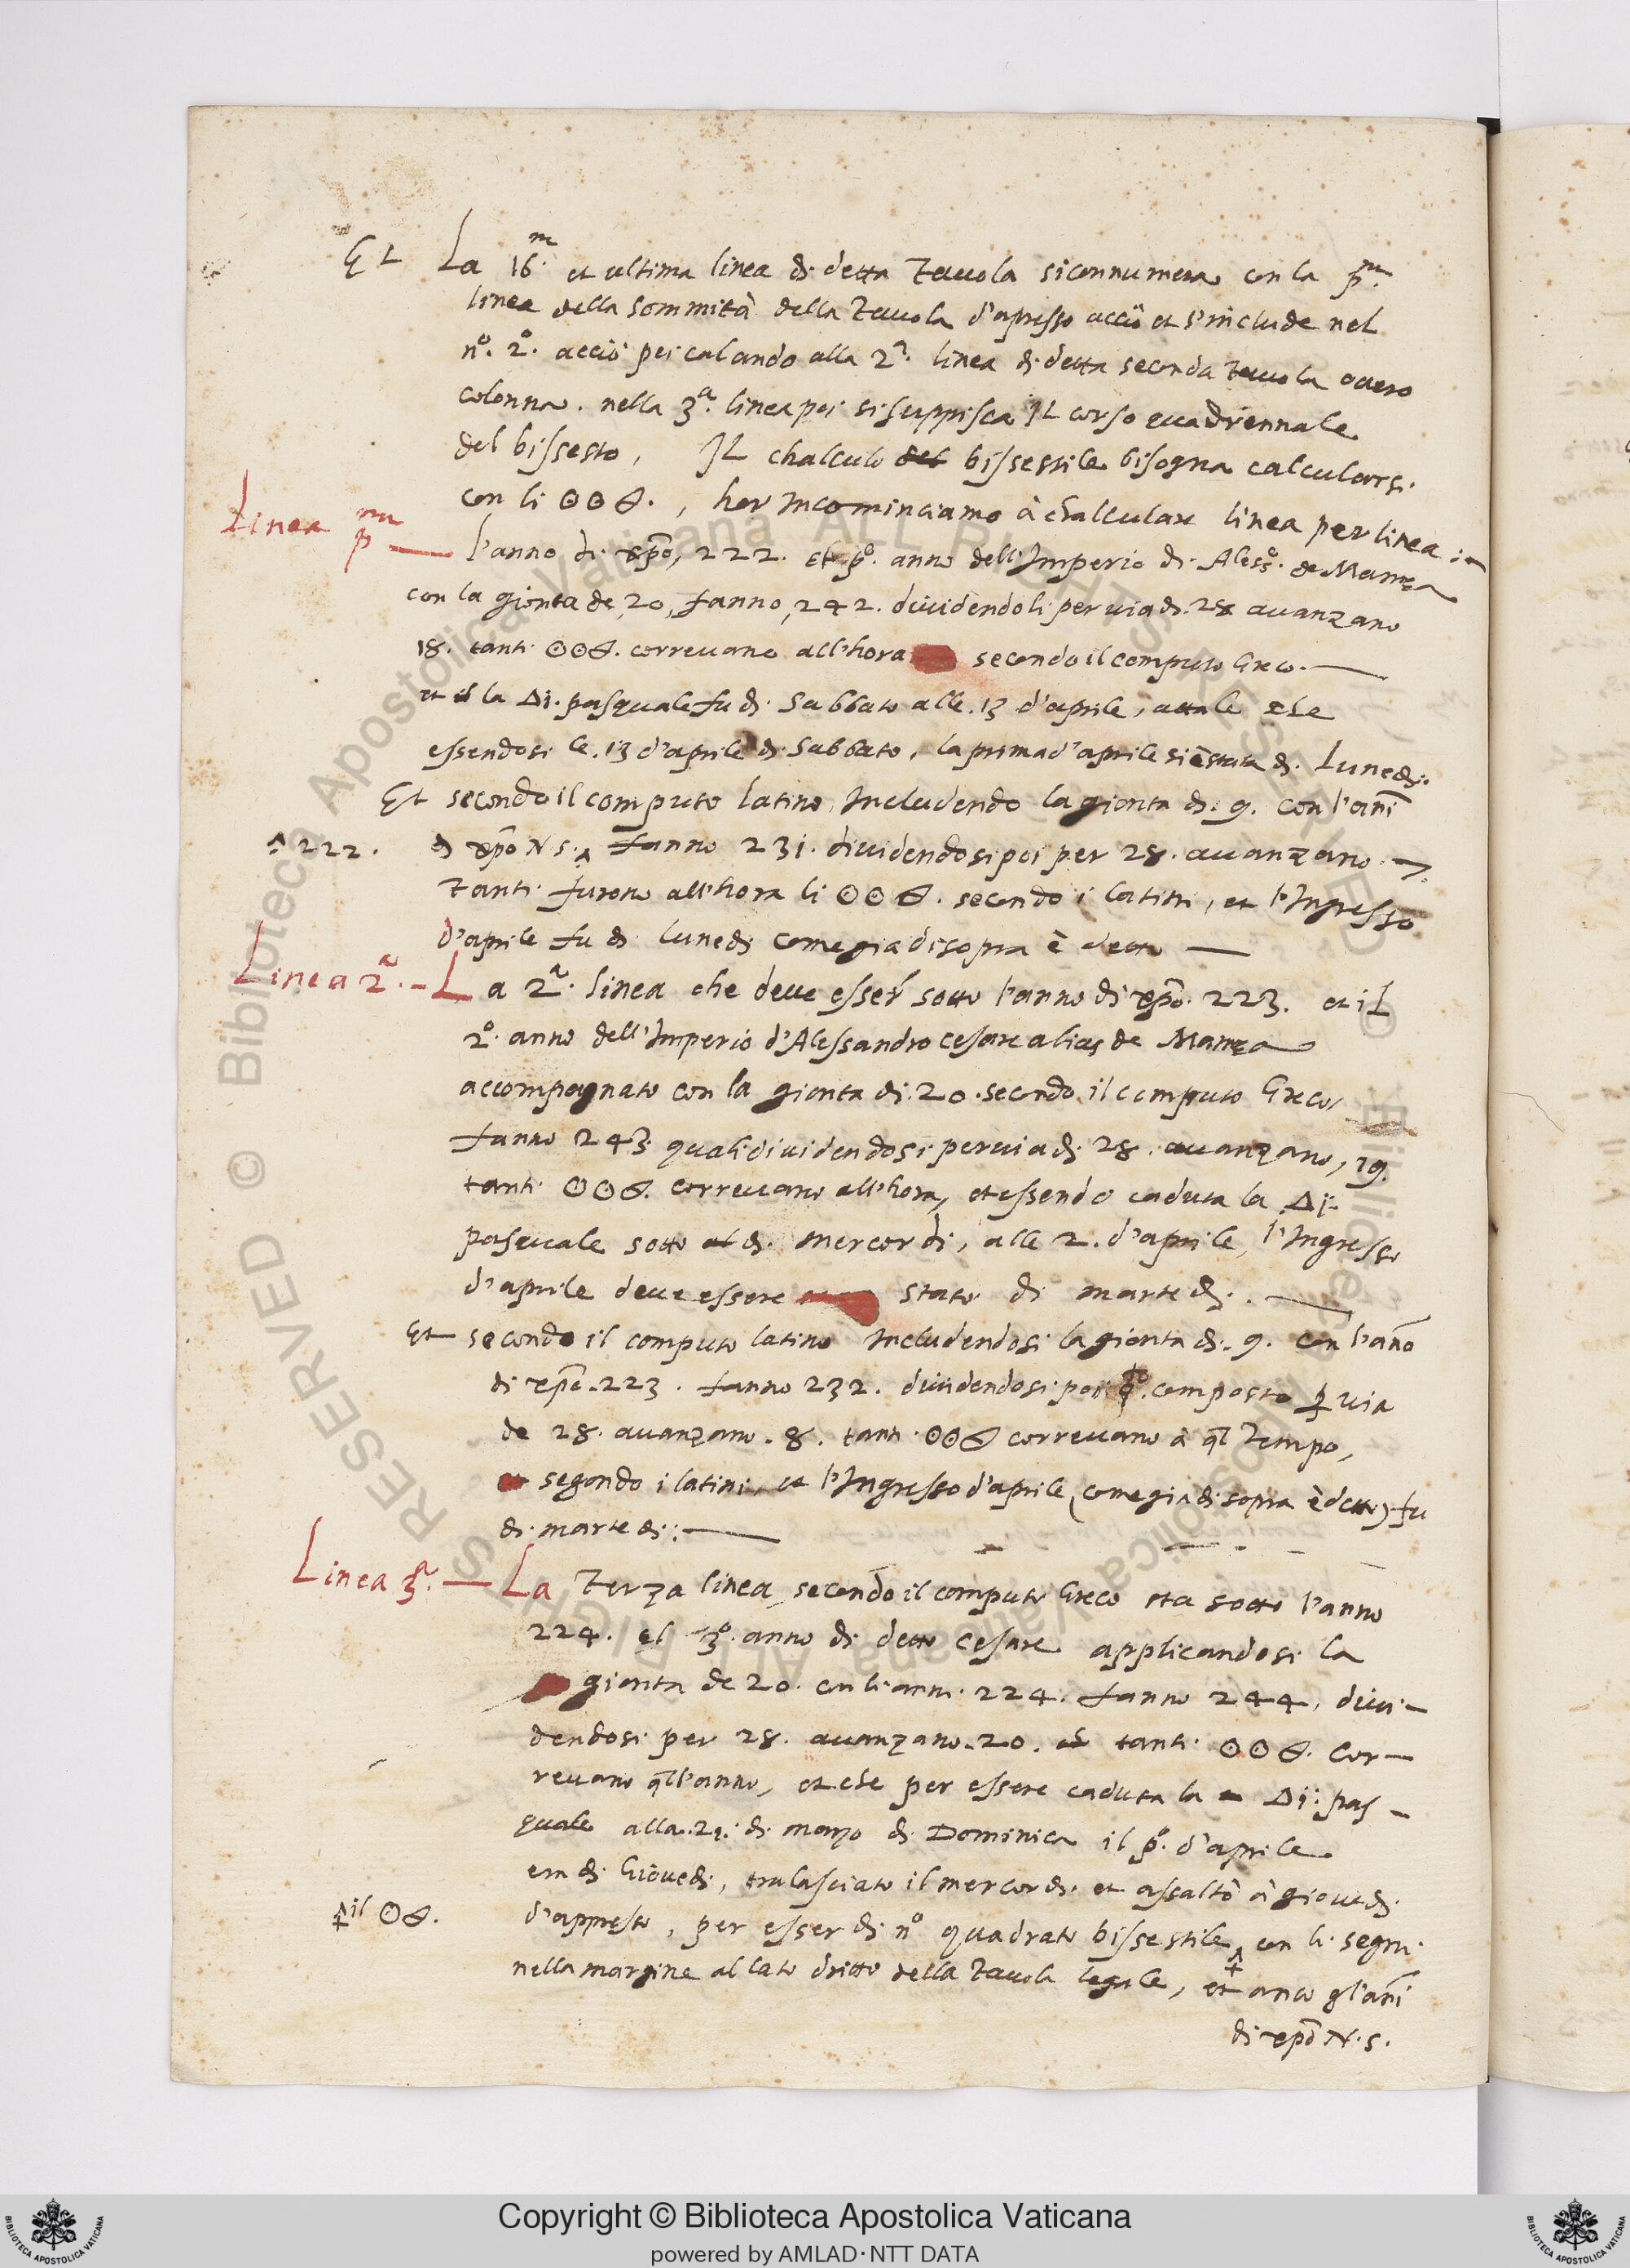 Et La 16.ma et ultima linea di detta Tauola si connumera con la p.ma
linea della sommità della Tauola d'apresso acciò et s'include nel
n.o 2.o acciò poi calando alla 2.a linea di detta seconda tauola ouero
colonna. nella 3.a linea poi si suppisca il corso quadriennale
del bissesto, Il chalculo del bissestile bisogna calcularsi
con li ʘʘS., hor Incominciamo à chalculare linea per linea :
Linea p.ma — l'anno di xpo, 222. el p.o anno dell'Imperio di Aless.o de Mamea
con la gionta de, 20, fanno, 242. diuidendoli per uia di 28 auanzano
18. tanti ʘʘS. correuano all'hora secondo il computo Greco. —
et la Di. pasquale fu di Sabbato alle .13 d'aprile, attale che
essendosi le .13 d'aprile di Sabbato, la prima d'aprile si è stata di Lunedi.
Et secondo il computo latino, Includendo la gionta di .9. con l'anni
^ 222.
di xpo N. S. ^ fanno 231. diuidendosi poi per 28. auanzano 7.
Tanti furono all'hora li ʘʘS. secondo i latini, et l'Ingresso
d'aprile fu di lunedi come gia di sopra è detto —
Linea 2.a — La 2.a linea che deue esser sotto l'anno di xpo. 223. et il
2.o anno dell'Imperio d'Alessandro cesare alias de Mamea
accompagnato con la gionta di .20. secondo il computo Greco,
fanno 243. quali diuidendosi per uia di 28. auanzano, 19.
tanti ʘʘS. correuano all'hora, et essendo caduta la Di.
pasquale sotto di mercordi, alle 2. d'aprile, l'Ingresso
d'aprile deue essere stato di martedi. —
Et secondo il computo latino Includendosi la gionta di .9. con l'anno
di xpo. 223. fanno 232. diuidendosi poi q.to composto p uia
de 28. auanzano .8. tanti ʘʘS correuano à ql Tempo,
segondo i latini, et l'Ingresso d'aprile (come gia di sopra è detto) fu
di martedi: —
Linea 3.a — La Terza linea, secondo il computo Greco sta sotto l'anno
224. el 3.o anno di detto cesare applicandosi la
gionta de 20. con li anni 224. fanno 244, diui-
dendosi per 28. auanzano .20. tanti ʘʘS. Cor-
reuano ql l'anno, et che per essere caduta la Di. pas-
quale alla .21. di marzo di Dominica il p.o d'aprile
era di Giouedi, tralasciato il mercordi et assaltò à giouedi
^ il ʘS.
d'appresso, per esser di n.o quadrato bissestile, ^ con li segni
nella margine al lato dritto della Tauola legale, et anco gl'anni
di xpo N. S.
Copyright © Biblioteca Apostolica Vaticana
powered by AMLAD·NTT DATA